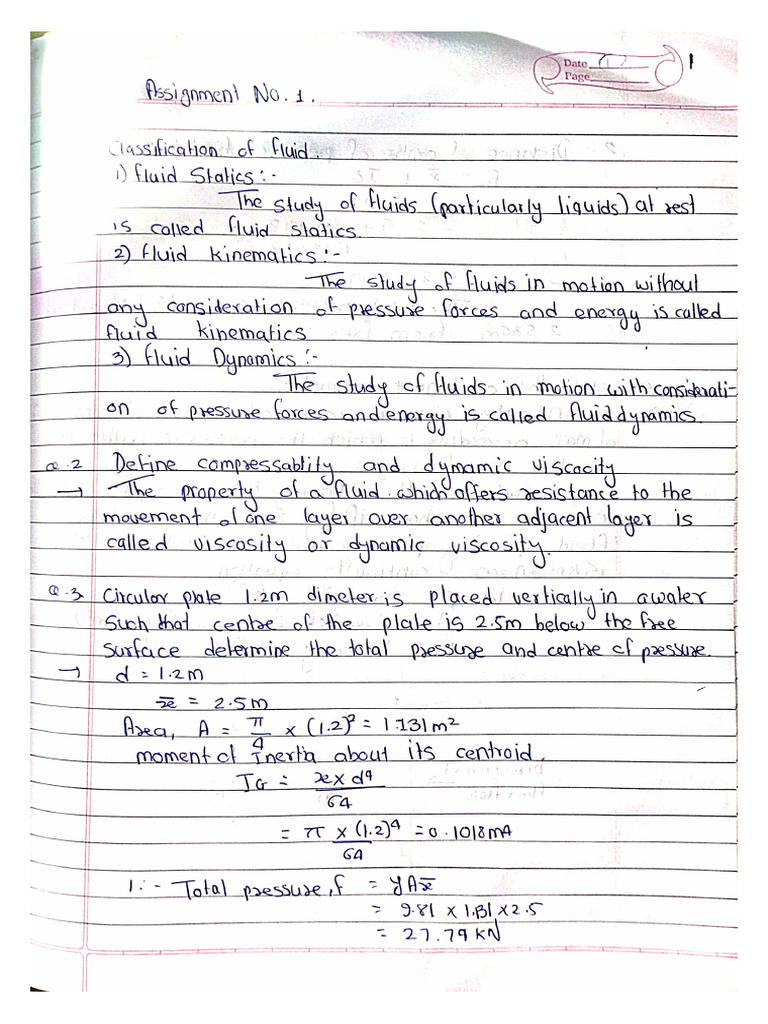 Date
Page
1
Assignment No. 1.
Classification of fluid.
1) fluid Statics :-
The study of fluids (particularly liquids) at rest
is called fluid statics.
2) fluid kinematics :-
The study of fluids in motion without
any consideration of pressure forces and energy is called
fluid kinematics
3) fluid Dynamics :-
The study of fluids in motion with considerati-
on of pressure forces and energy is called fluid dynamics.
Q.2 Define compressabtity and dymamic viscocity
→ The property of a fluid which offers resistance to the
movement of one layer over another adjacent layer is
called viscosity or dynamic viscosity.
Q.3 Circular plate 1.2m dimeter is placed vertically in a water
such that centre of the plate is 2.5m below the free
surface determine the total pressure and centre of pressure.
→ d = 1.2m
x̄ = 2.5m
Area, A = π/4 × (1.2)² = 1.131m²
moment of Inertia about its centroid,
IG = x × d⁴/64
= π × (1.2)⁴/64 = 0.1018m4
1 :- Total pressure, f = yAx̄
= 9.81 × 1.131 × 2.5
= 27.79 kN